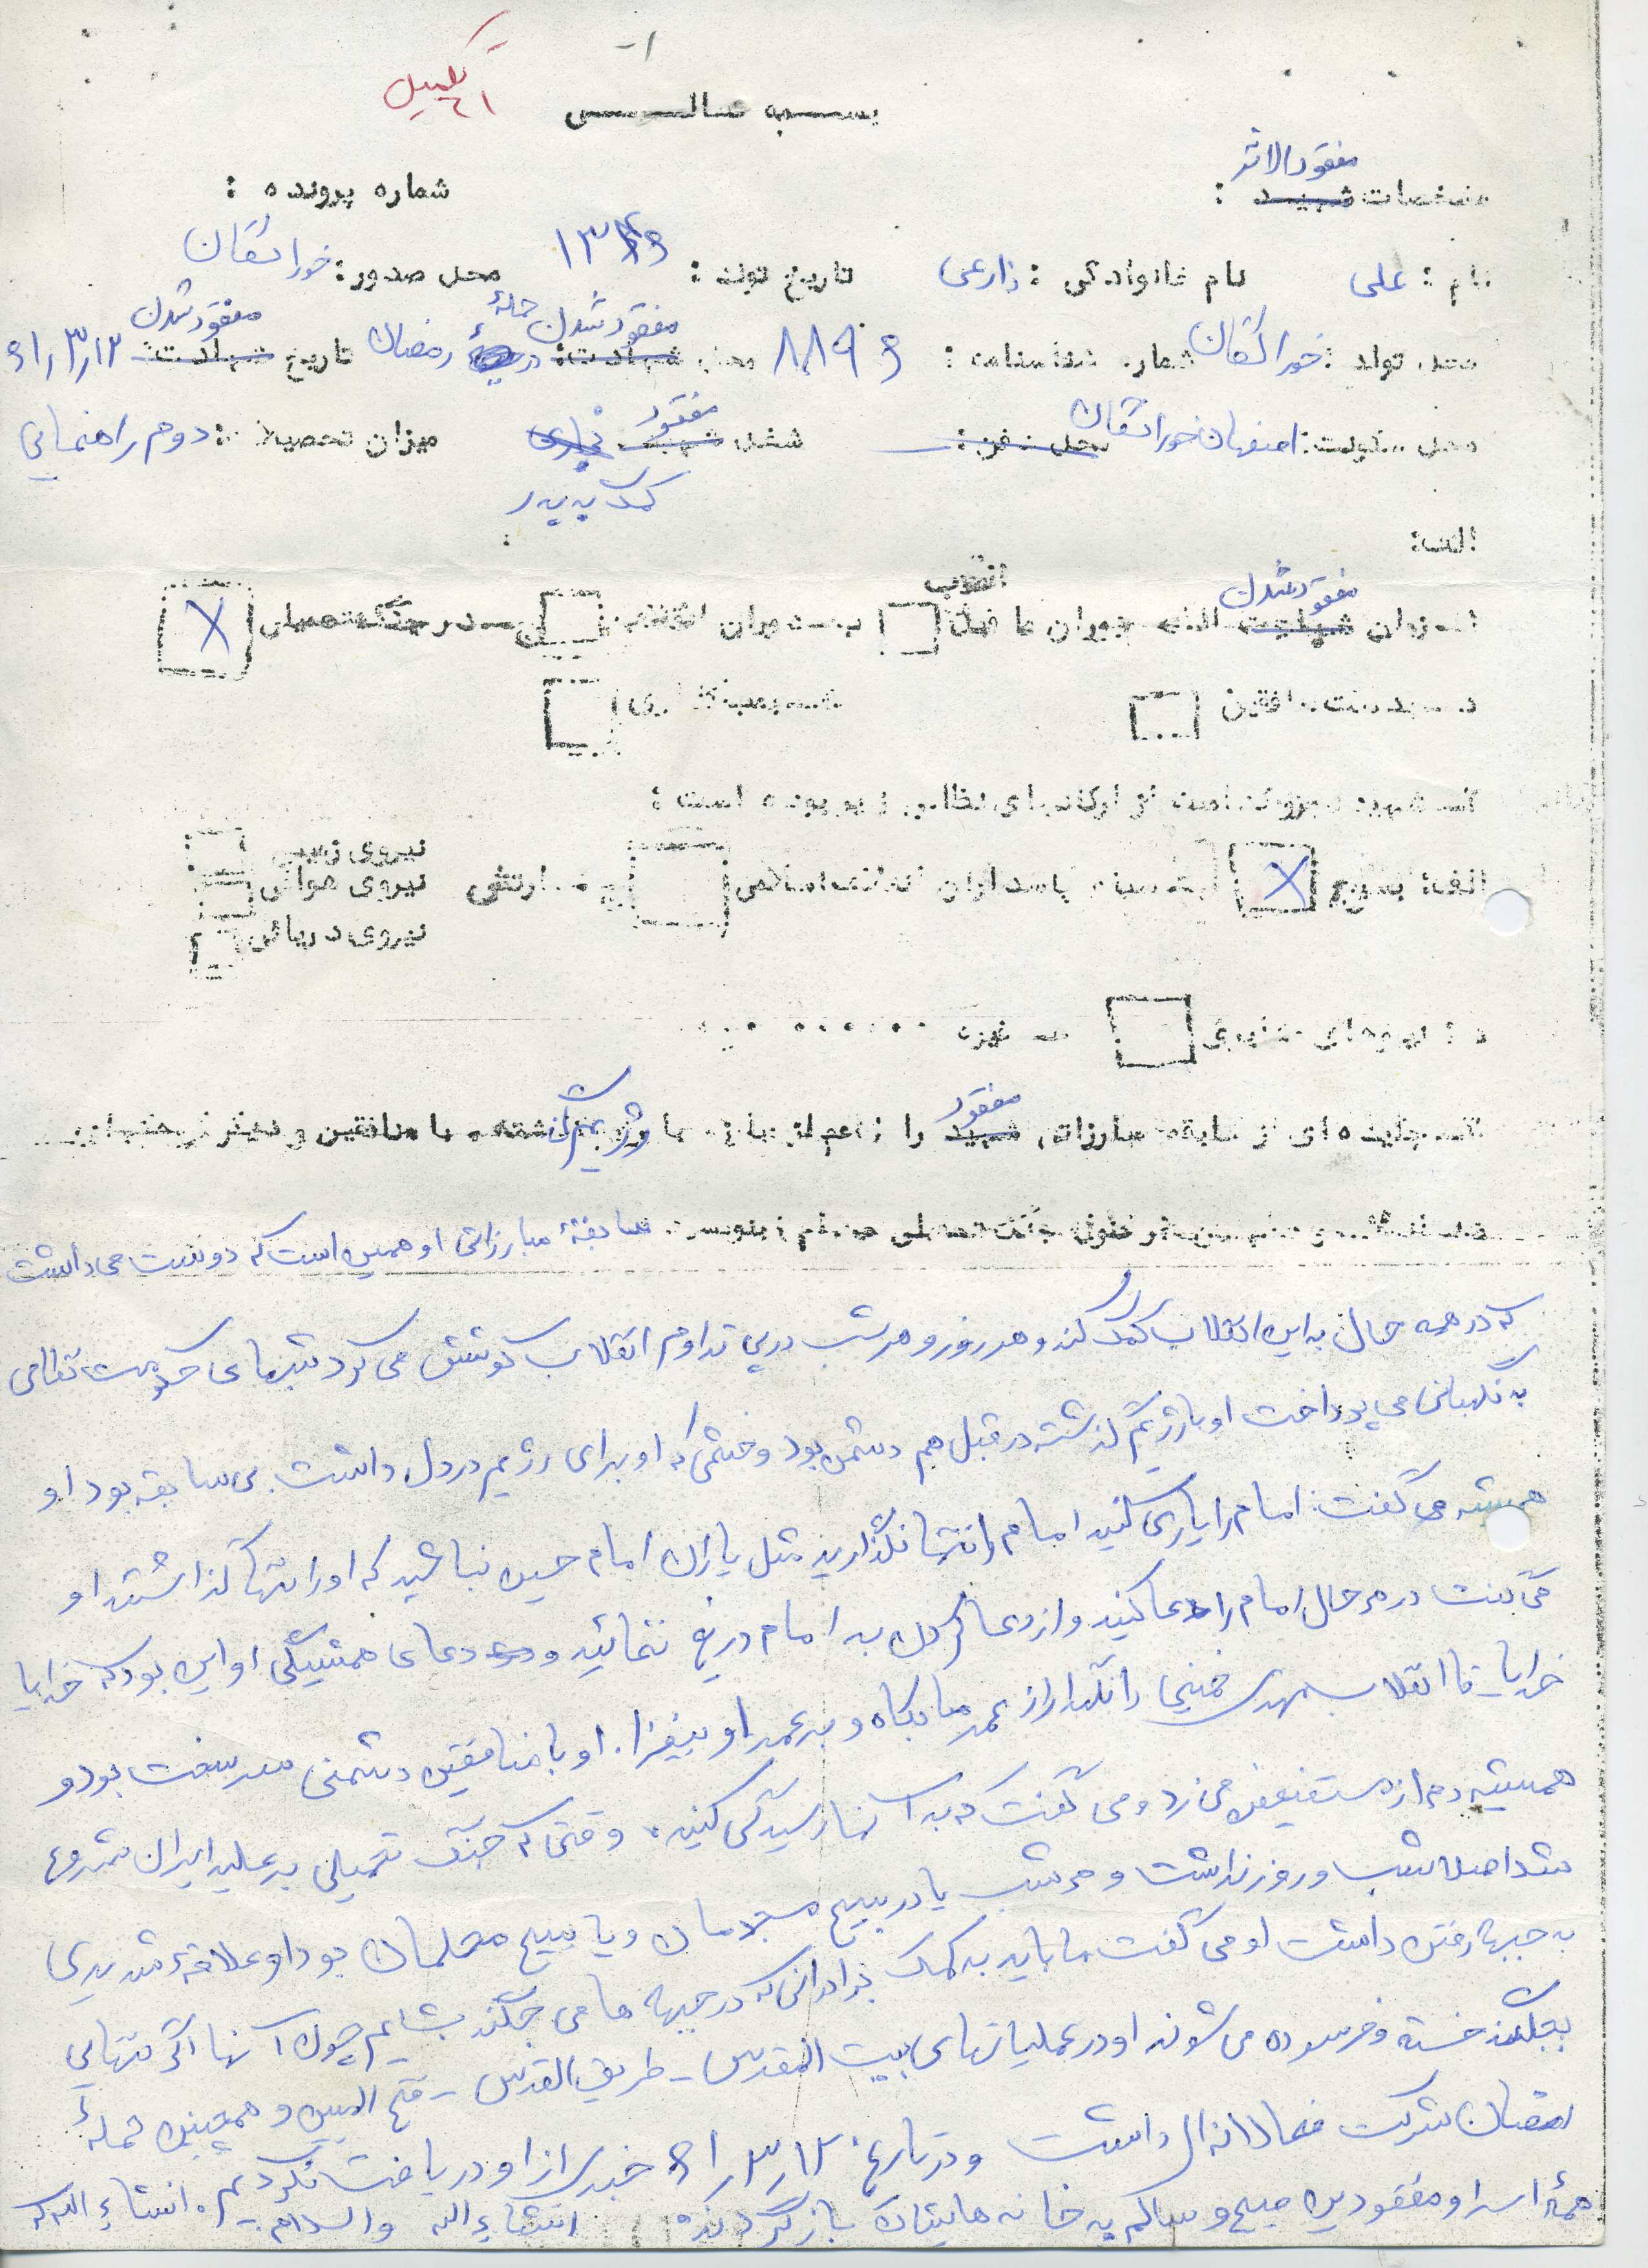 بسمه تعالی
تکمیل
مفقودالاثر
مشخصات شهید :
شماره پرونده :
نام : علی نام خانوادگی : زارعی تاریخ تولد : ۱۳۴۶ محل صدور : خوراسگان
حملهٔ
مفقود شدن مفقود شدن
محل تولد : خوراسگان شماره شناسنامه : ۸۸۹۶ محل شهادت: در رمضان تاریخ شهادت: ۶۱/۳/۱۲
مفقود
محل سکونت: اصفهان خوراسگان محل دفن : شغل شهید میزان تحصیلات : دوم راهنمایی
کمک به پدر
الف:
مفقود شدن انقلاب
زمان شهادت الف دوران ما قبل ب دوران انقلاب در جنگ تحمیلی X
د بدست منافقین بمب گذاری
شهید جزو کدامیک از ارگانهای نظامی زیر بوده است :
الف: بسیج X ب سپاه پاسداران انقلاب اسلامی ارتشی نیروی زمینی
نیروی هوائی
نیروی دریائی
د : نیروهای غیره
مفقود
چکیده‌ای از سابقه مبارزاتی شهید را اعم از مبارزه با رژیم گذشته ، با منافقین و
در طول جنگ تحمیلی بنویسید سابقهٔ مبارزاتی او همین است که دوست می داشت
که در همه حال به این انقلاب کمک کند و هر روز و هر شب در پی تداوم انقلاب کوشش می کرد شبهای حکومت نظامی
به نگهبانی می پرداخت او با رژیم گذشته در قبل هم دشمن بود و خشمی که او برای رژیم در دل داشت بی سابقه بود او
همیشه می گفت : امام را یاری کنید امام را تنها نگذارید مثل یاران امام حسین نباشید که او را تنها گذاشتند او
می گفت در هر حال امام را دعا کنید و از دعا کردن به امام دریغ ننمائید و دعای همیشگی او این بود که خدایا
خدایا تا انقلاب مهدی خمینی را نگهدار از عمر ما بکاه و به عمر او بیفزا . او با منافقین دشمنی سرسخت بود و
همیشه دم از مستضعفین می زد و می گفت که به آنها رسیدگی کنید . وقتی که جنگ تحمیلی بر علیه ایران شروع
شد اصلا شب و روز نداشت و هر شب یا در بسیج مسجدمان و یا بسیج محلمان بود او علاقهٔ شدیدی
به جبهه رفتن داشت او می گفت ما باید به کمک برادرانی که در جبهه ها می جنگند بشتابیم چون آنها اگر تنهایی
بجنگند خسته و فرسوده می شوند او در عملیاتهای بیت المقدس – طریق القدس – فتح المبین و همچنین حملهٔ
رمضان شرکت فعالانه‌ای داشت و در تاریخ ۶۱/۳/۱۲ خبری از او دریافت نکردیم . انشاء الله که
همهٔ اسرا و مفقودین صحیح و سالم به خانه هایشان بازگردند . انشاء الله والسلام